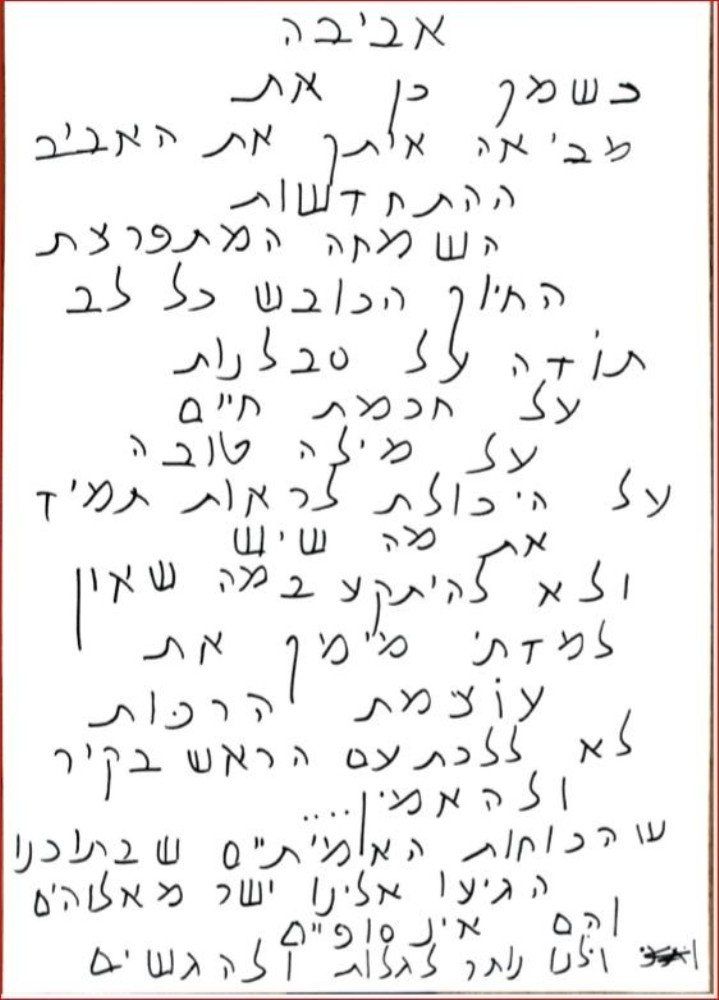 אביבה
כשמך כן את
מביאה איתך את האביב
ההתחדשות
השמחה המתפרצת
החיוך הכובש כל לב
תודה על סבלנות
על חכמת חיים
על מילה טובה
על היכולת לראות תמיד
את מה שיש
ולא להיתקע במה שאין
למדתי מימך את
עוצמת הרכות
לא ללכת עם הראש בקיר
ולהאמין....
שהכוחות האמיתיים שבתוכנו
הגיעו אלינו ישר מאלוהים
והם אינסופיים
ולנו נותר לגלות ולהגשים